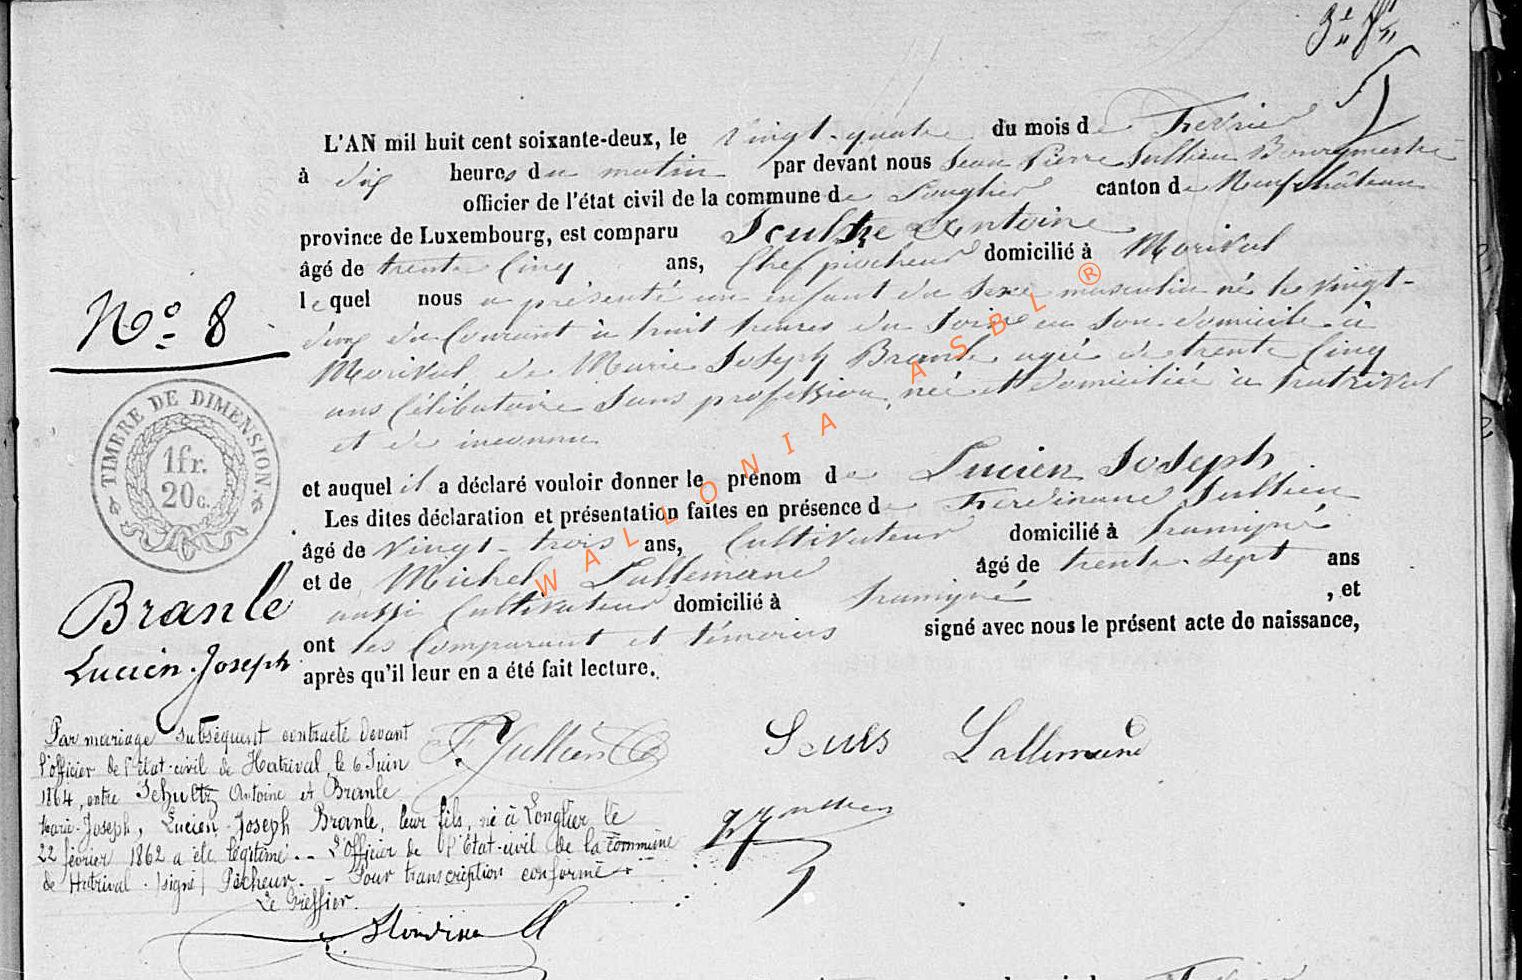 L'AN mil huit cent soixante-deux, le vingt-quatre du mois de Fevrier
à dix heures du matin par devant nous Jean Pierre Jullien Bourgmestre
officier de l'état civil de la commune de Longlier canton de Neufchâteau
province de Luxembourg, est comparu Antoine
âgé de trente Cinq ans, Chef piocheur domicilié à Morival
lequel nous a présenté un enfant du Sexe masculin né le vingt-
deux du Courant à huit heures du Soir en Son domicile à
Morival de Marie Joseph Branle agée de trente Cinq
ans Célibataire Sans profession, née et domiciliée à hatrival
et de inconnu
et auquel il a déclaré vouloir donner le prénom de Lucien Joseph
Les dites déclaration et présentation faites en présence de Ferdinand Jullien
âgé de vingt-trois ans, Cultivateur domicilié à hamipré
et de Michel Lallemand âgé de trente-sept ans
aussi Cultivateur domicilié à hamipré , et
ont les Comparant et témoins signé avec nous le présent acte de naissance,
après qu'il leur en a été fait lecture.
N° 8
TIMBRE DE DIMENSION
1fr.
20c.
Branle
Lucien-Joseph
Par mariage subséquent contracté devant
l'officier de l'état-civil de Hatrival le 6 Juin
1864, entre Schultz Antoine et Branle
Marie-Joseph, Lucien-Joseph Branle, leur fils, né à Longlier le
22 février 1862 a été légitimé.-- L'Officier de l'Etat-civil de la commune
de Hatrival. (signé) Pêcheur.- Pour transcription conforme.
Le Greffier.
F. Jullien Lallemand
WALLONIA ASBL ®